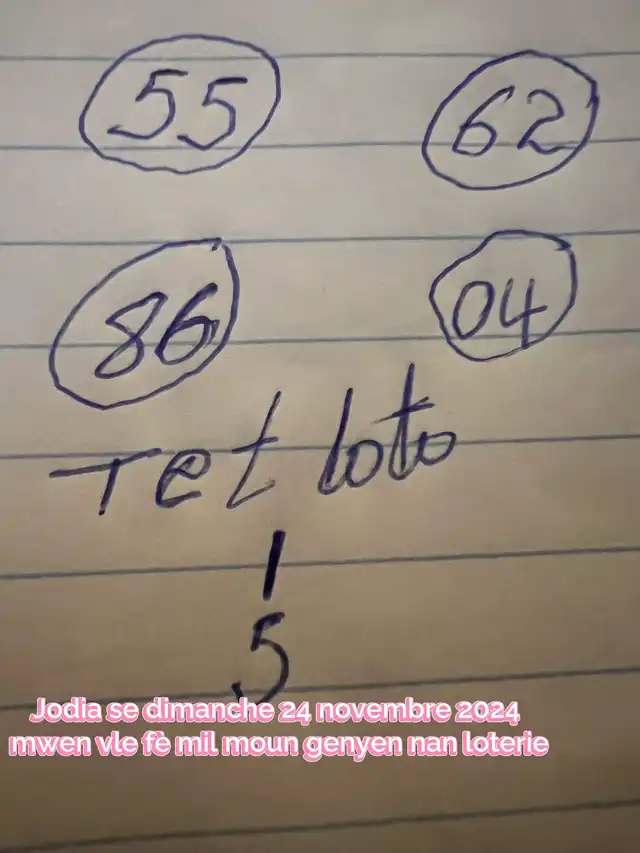 55 62
86 04
Tet loto
1
5
Jodia se dimanche 24 novembre 2024
mwen vle fè mil moun genyen nan loterie